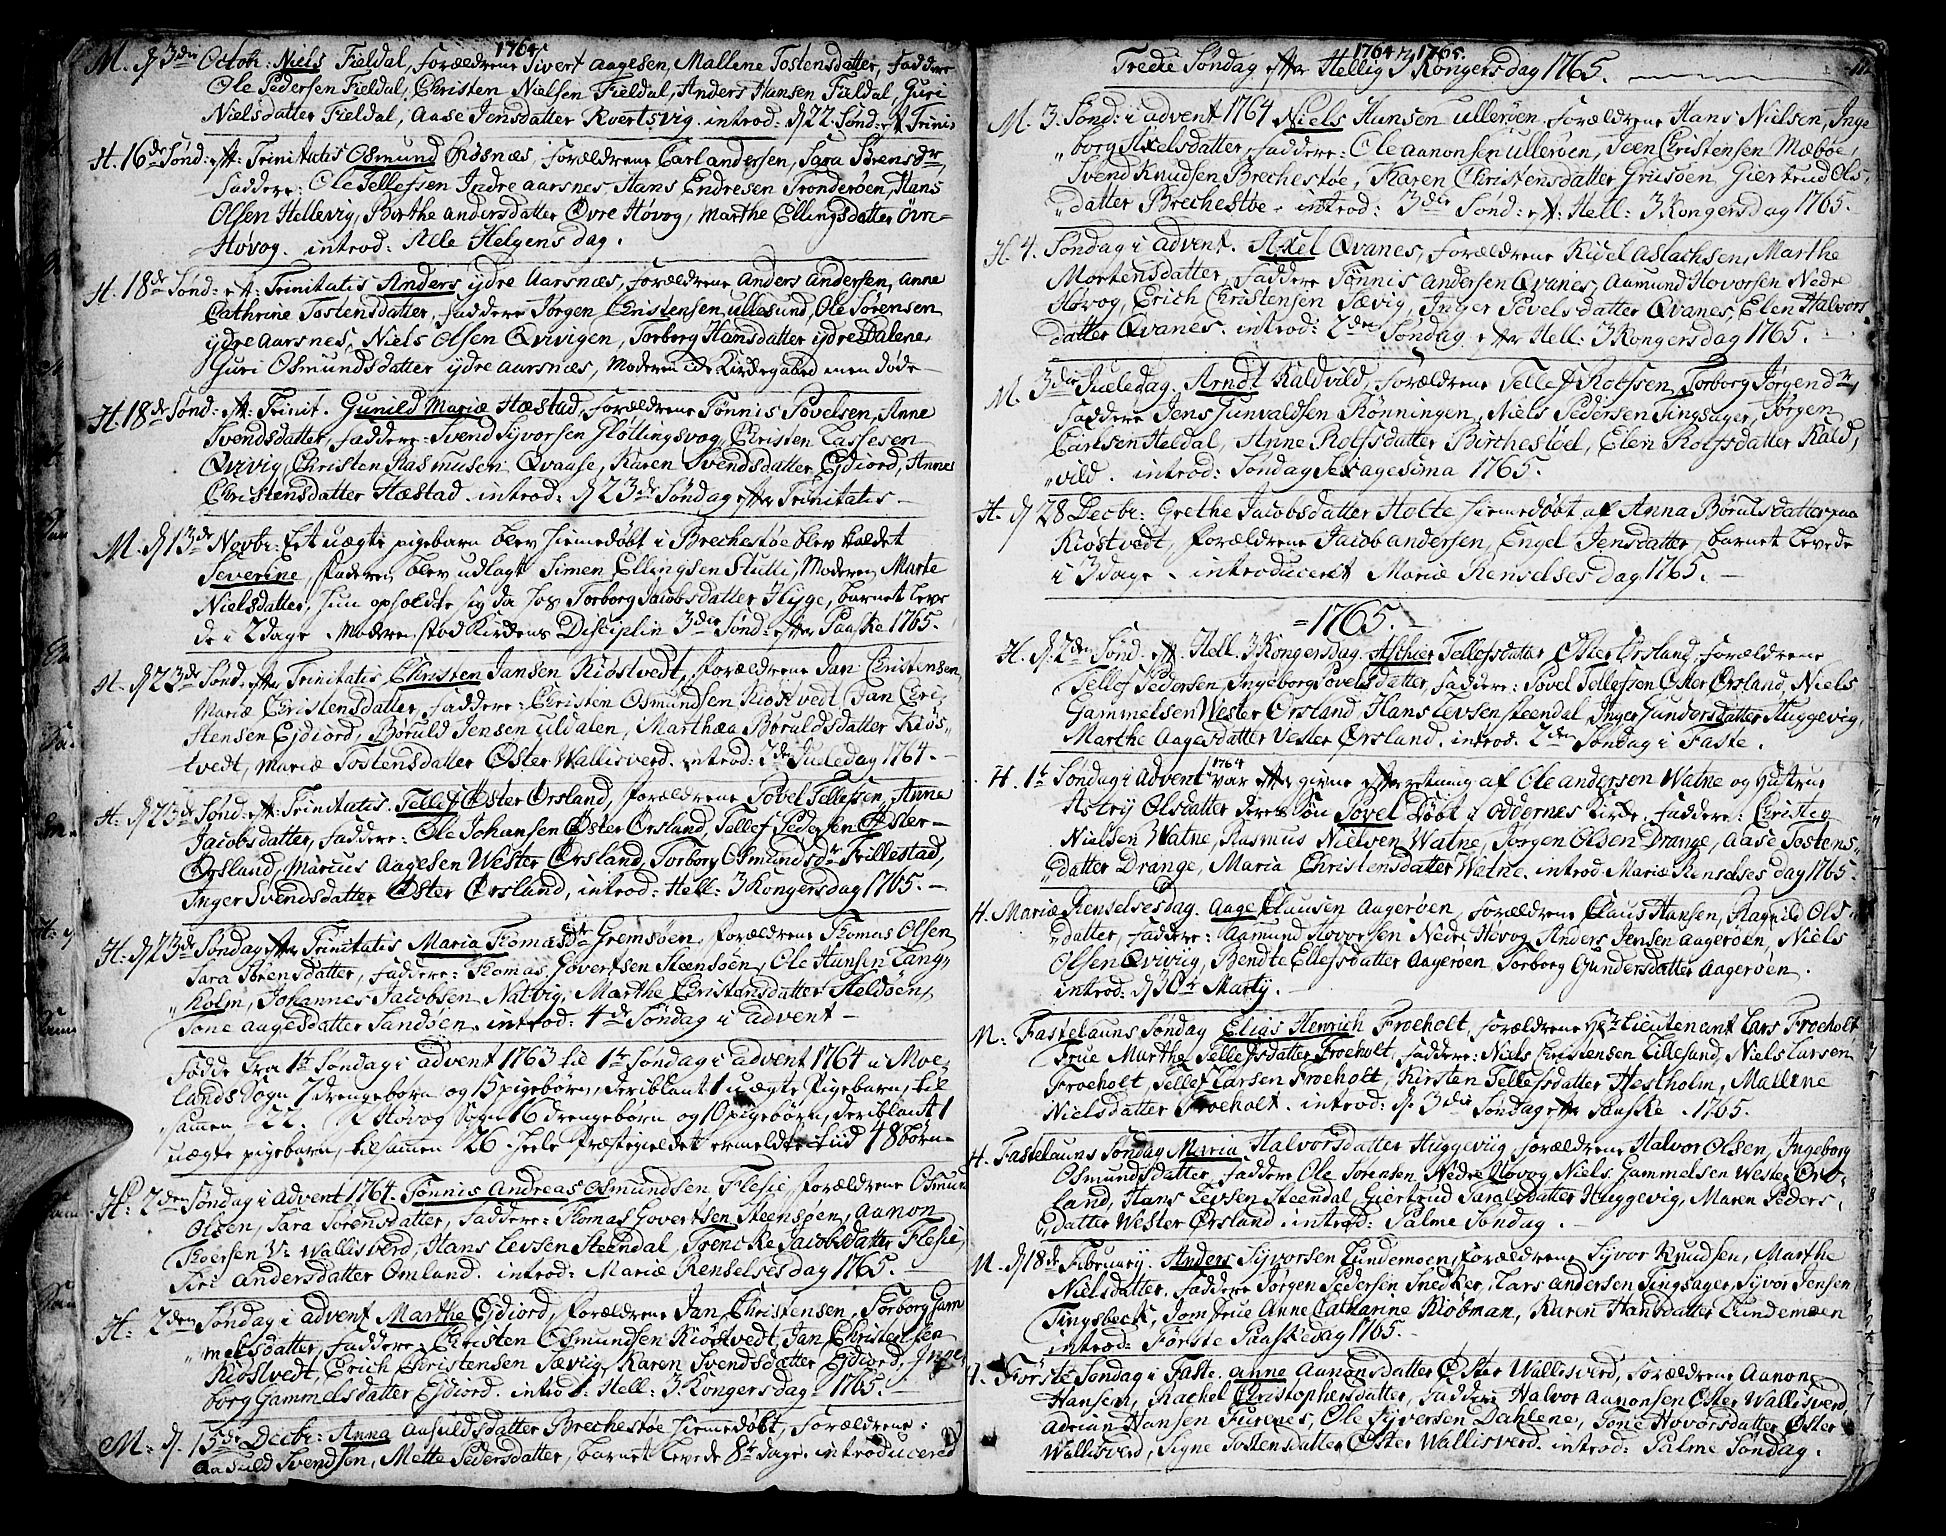 1764
M. d. 3die Octob: Niels Fieldal, Forældrene Sivert Aagesen, Mallene Tostensdatter, Faddere
Ole Pedersen Fieldal, Christen Nielsen Fieldal, Anders Hansen Fieldal, Guri
Nielsdatter Fieldal, Aase Jensdatter Kvertsvig. introd: d 22. Sønd: eft Trinit
H. 16de Sønd: eft: Trinitatis Osmund Røsnæs, Forældrene Carl Andersen, Sara Sørensdr,
Faddere: Ole Tellefsen Indre Aarsnes Hans Endresen Tronderøen, Hans
Olsen Hellevig, Birthe Andersdatter Øvre Høvog, Marthe Ellingsdatter Øvre
Høvog. introd: Alle Helgens dag.
H. 18de Sønd: eft: Trinitatis Anders ydre Aarsnæs, Forældrene Anders Andersen, Anne
Cathrine Tostensdatter, Faddere Jørgen Christensen Ullesund, Ole Sørensen
ydre Aarsnes, Niels Olsen Qvivigen, Torborg Hansdatter ydre Dalene,
Guri Osmundsdatter ydre Aarsnæs, Moderen ide Kirkegabed men døde
H. 18de Sønd: eft: Trinit. Gunild Mariæ Hæstad, Forældrene Tønnis Povelsen, Anne
Svendsdatter, Faddere: Svend Syvorsen Fløllingsvog, Christen Lassesen
Qvivig, Christen Rasmusen Qvaase, Karen Svendsdatter Ejdiord, Anne
Christensdatter Hæstad. introd: d 23de Søndag efter Trinitatis
M. d 13de Novbr: Et uægte pigebarn blev hiemedøbt i Brechestøe blev kaldet
Severine, Faderen blev udlagt Simen Ellingsen Slutte, Moderen Marte
Nielsdatter, hun opholdte sig da hos Torborg Jacobsdatter Hyge, barnet leve
de i 2 dage. Moderen stod Kirkens Disciplin 3die Sønd: efter Paaske 1765.
H. d 23de Sønd. efter Trinitatis Christen Jansen Kiøstvedt, Forældrene Jan Christensen,
Mariæ Christensdatter, Faddere: Christen Osmundsen Kiøstvedt, Jan Chri-
stensen Ejdiord, Børuld Jensen Uldalen, Marthæa Børuldsdatter Kiøs-
tvedt, Mariæ Tostensdatter Øster Wallisverd. introd: 2den Juledag 1764.
H. d 23de Sønd: eft: Trinitatis. Tellef Øster Ørsland, Forældrene Povel Tellefsen, Anne
Jacobsdatter, Faddere: Ole Johansen Øster Ørsland, Tellef Pedersen Øster-
Ørsland, Marcus Aagesen Wester Ørsland, Torborg Osmundsdr Trillestad,
Inger Svendsdatter Øster Ørsland, introd: Hell: 3 Kongersdag 1765.
H. d 23de Søndag efter Trinitatis Maria Thomasdr Gremsøen, Forældrene Thomas Olsen
Sara Sørensdatter, Faddere: Thomas Govertsen Steensøen, Ole Hansen Lang-
holm, Johannes Jacobsen Natvig, Marthe Christensdatter Heldøen,
Tone Aagesdatter Sandøen. introd: 4de Søndag i Advent
Fødde fra 1te Søndag i Advent 1763 til 1te Søndag i Advent 1764 i Moe-
lands Sogn 7 drengebørn og 15 pigebørn, deriblant 1 uægte Pigebarn, til
sammen 22. I Høvog Sogn 16 drengebørn og 10 pigebørn, deriblant 1
uægte pigebarn, tilsammen 26. Heele Præstegieldet ermeldte Tiid 48 børn
H: 2den Søndag i Advent 1764. Tønnis Andreas Osmundsen Flesie, Forældrene Osmund
Olsen, Sara Sørensdatter, Faddere: Thomas Govertsen Steensøen, Aanon
Thoersen V: Wallisverd, Hans Levsen Steendal, Trencke Jacobsdatter Flesie,
Siri Andersdatter Omland. introd: Mariæ Renselses dag 1765.
H: 2den Søndag i Advent Marthe Ejdiord, Forældrene Jan Christensen, Torborg Gam
melsdatter, Faddere: Christen Osmundsen Kiøstvedt, Jan Christensen
Kiøstvedt, Erich Christensen Sævig, Karen Svendsdatter Ejdiord, Inge-
borg Gammelsdatter Ejdiord. introd: Hell: 3 Kongersdag 1765.
M: d. 15de Decbr: Anna Aasuldsdatter Brechestøe hiemedøbt, Forældrene:
Aasuld Svendsen, Mette Pedersdatter, barnet levede 8te dage. introducered
1764 og 1765.
Tredie Søndag efter Hellig 3 Kongersdag 1765.
M. 3. Sønd: i Advent 1764 Niels Hansen Ullerøen. Forældrene Hans Nielsen, Inge
borg Axelsdatter, Faddere: Ole Aanonsen Ullerøen, Seen Christensen Mæbøe,
Svend Knudsen Brechestøe, Karen Christensdatter Griisøen, Giertrud Ols-
datter Brechestøe. introd: 3die Sønd: eft: Hell: 3 Kongersdag 1765.
H. 4. Søndag i Advent. Axel Qvanes, Forældrene Kiel Aslachsen, Marthe
Mortensdatter, Faddere Tønnis Andersen Qvanes, Aamund Hovorsen Nedre
Høvog, Erich Christensen Sævig, Inger Povelsdatter Qvanes, Elen Halvors
datter Qvanes. introd: 2den Søndag efter Hell: 3 Kongersdag 1765.
M. 3die Jueledag. Arndt Kaldvild, Forældrene Tellef Rolfsen, Torborg Jørgendr,
Faddere Jens Tunvaldsen Rønningen, Niels Pedersen Tingsager, Jørgen
Carlsen Heldal, Anne Rolfsdatter Birchestøel, Elen Rolfsdatter Kald-
vild. introd: Søndag Sexagesima 1765.
H. d 28 Decbr: Grethe Jacobsdatter Holte hiemedøbt af Anna Børulsdatter paa
Kiøstvedt, Forældrene Jacob Andersen, Engel Jensdatter, barnet levede
i 3 dage. introduceret Mariæ Renselses Dag 1765.
=1765.
H. d. 2den Sønd. eft. Hell. 3 Kongersdag. Asthier Tellefsdatter Øster Ørsland, Forældrene
Tellef Pedersen, Ingeborg Povelsdatter, Faddere: Povel Tellefsen Øster Ørsland, Niels
Gammelsen Wester Ørsland, Hans Levsen Steendal, Inger Gundersdatter Huggevig,
Marthe Aagesdatter Vester Ørsland. introd. 2den Søndag i Faste.
H. 1te Søndag i Advent 1764 var efter givne efterretning af Ole Andersen Watne og Hustrue
Astrij Olsdatter deres Søn Povel Døbt i Oddernes Kirke, Faddere: Christen
Nielsen Watne, Rasmus Nielsen Watne, Jørgen Olsen Drange, Aase Tostens-
datter Drange, Maria Christensdatter Watne. introd: Mariæ Renselses dag 1765.
H. Mariæ Renselsesdag. Aage Clausen Aagerøen, Forældrene Claus Hansen, Ragnild Ols-
datter, Faddere: Aamund Hovorsen Nedre Høvog, Anders Jensen Aagerøen, Niels
Olsen Qvivig, Bendte Ellefsdatter Aagerøen, Torborg Gundersdatter Aagerøen.
introd: d 30te Martij.
M: Fastelauns Søndag Elias Henrich Froeholt, Forældrene Hr Lieutenant Lars Froeholt
Frue Marthe Tellefsdatter Froeholt, Faddere: Niels Christensen Lillesand, Niels Larsen
Froeholt, Tellef Larsen Froeholt, Kirsten Tellefsdatter Hestholm, Mallene
Nielsdatter Froeholt. introd: d. 3die Søndag efter Paaske 1765.
H. Fastelauns Søndag Maria Halvorsdatter Huggeviig, Forældrene Halvor Olsen, Ingeborg
Osmundsdatter, Faddere Ole Sørensen, Nedre Høvog, Niels Gammelsen Wester Ørs-
land, Hans Levsen Steendal, Giertrud Saralsdatter Huggevig, Maren Peders-
datter Wester Ørsland. introd: Palme Søndag.
M. d 18de February. Anders Syvorsen Lundemoen, Forældrene Syvor Knudsen, Marthe
Nielsdatter, Faddere Jørgen Pedersen Snedker, Lars Andersen Tingsager, Syvor Jensen
Tingsbeck, Jomfrue Anne Catharine Kiøbman, Karen Hansdatter Lundemoen
introd: Første Paaskedag 1765.
H. Første Søndag i Faste. Anne Aanonsdatter Øster Wallisverd, Forældrene Aanon
Hansen, Rachel Christophersdatter, Faddere Halvor Aanonsen Øster Wallisverd,
Adrian Hansen Furenes, Ole Syversen Dahlene, Tone Hovorsdatter Øster
Wallisverd, Signe Tostensdatter Øster Wallisverd. introd: Palme Søndag.